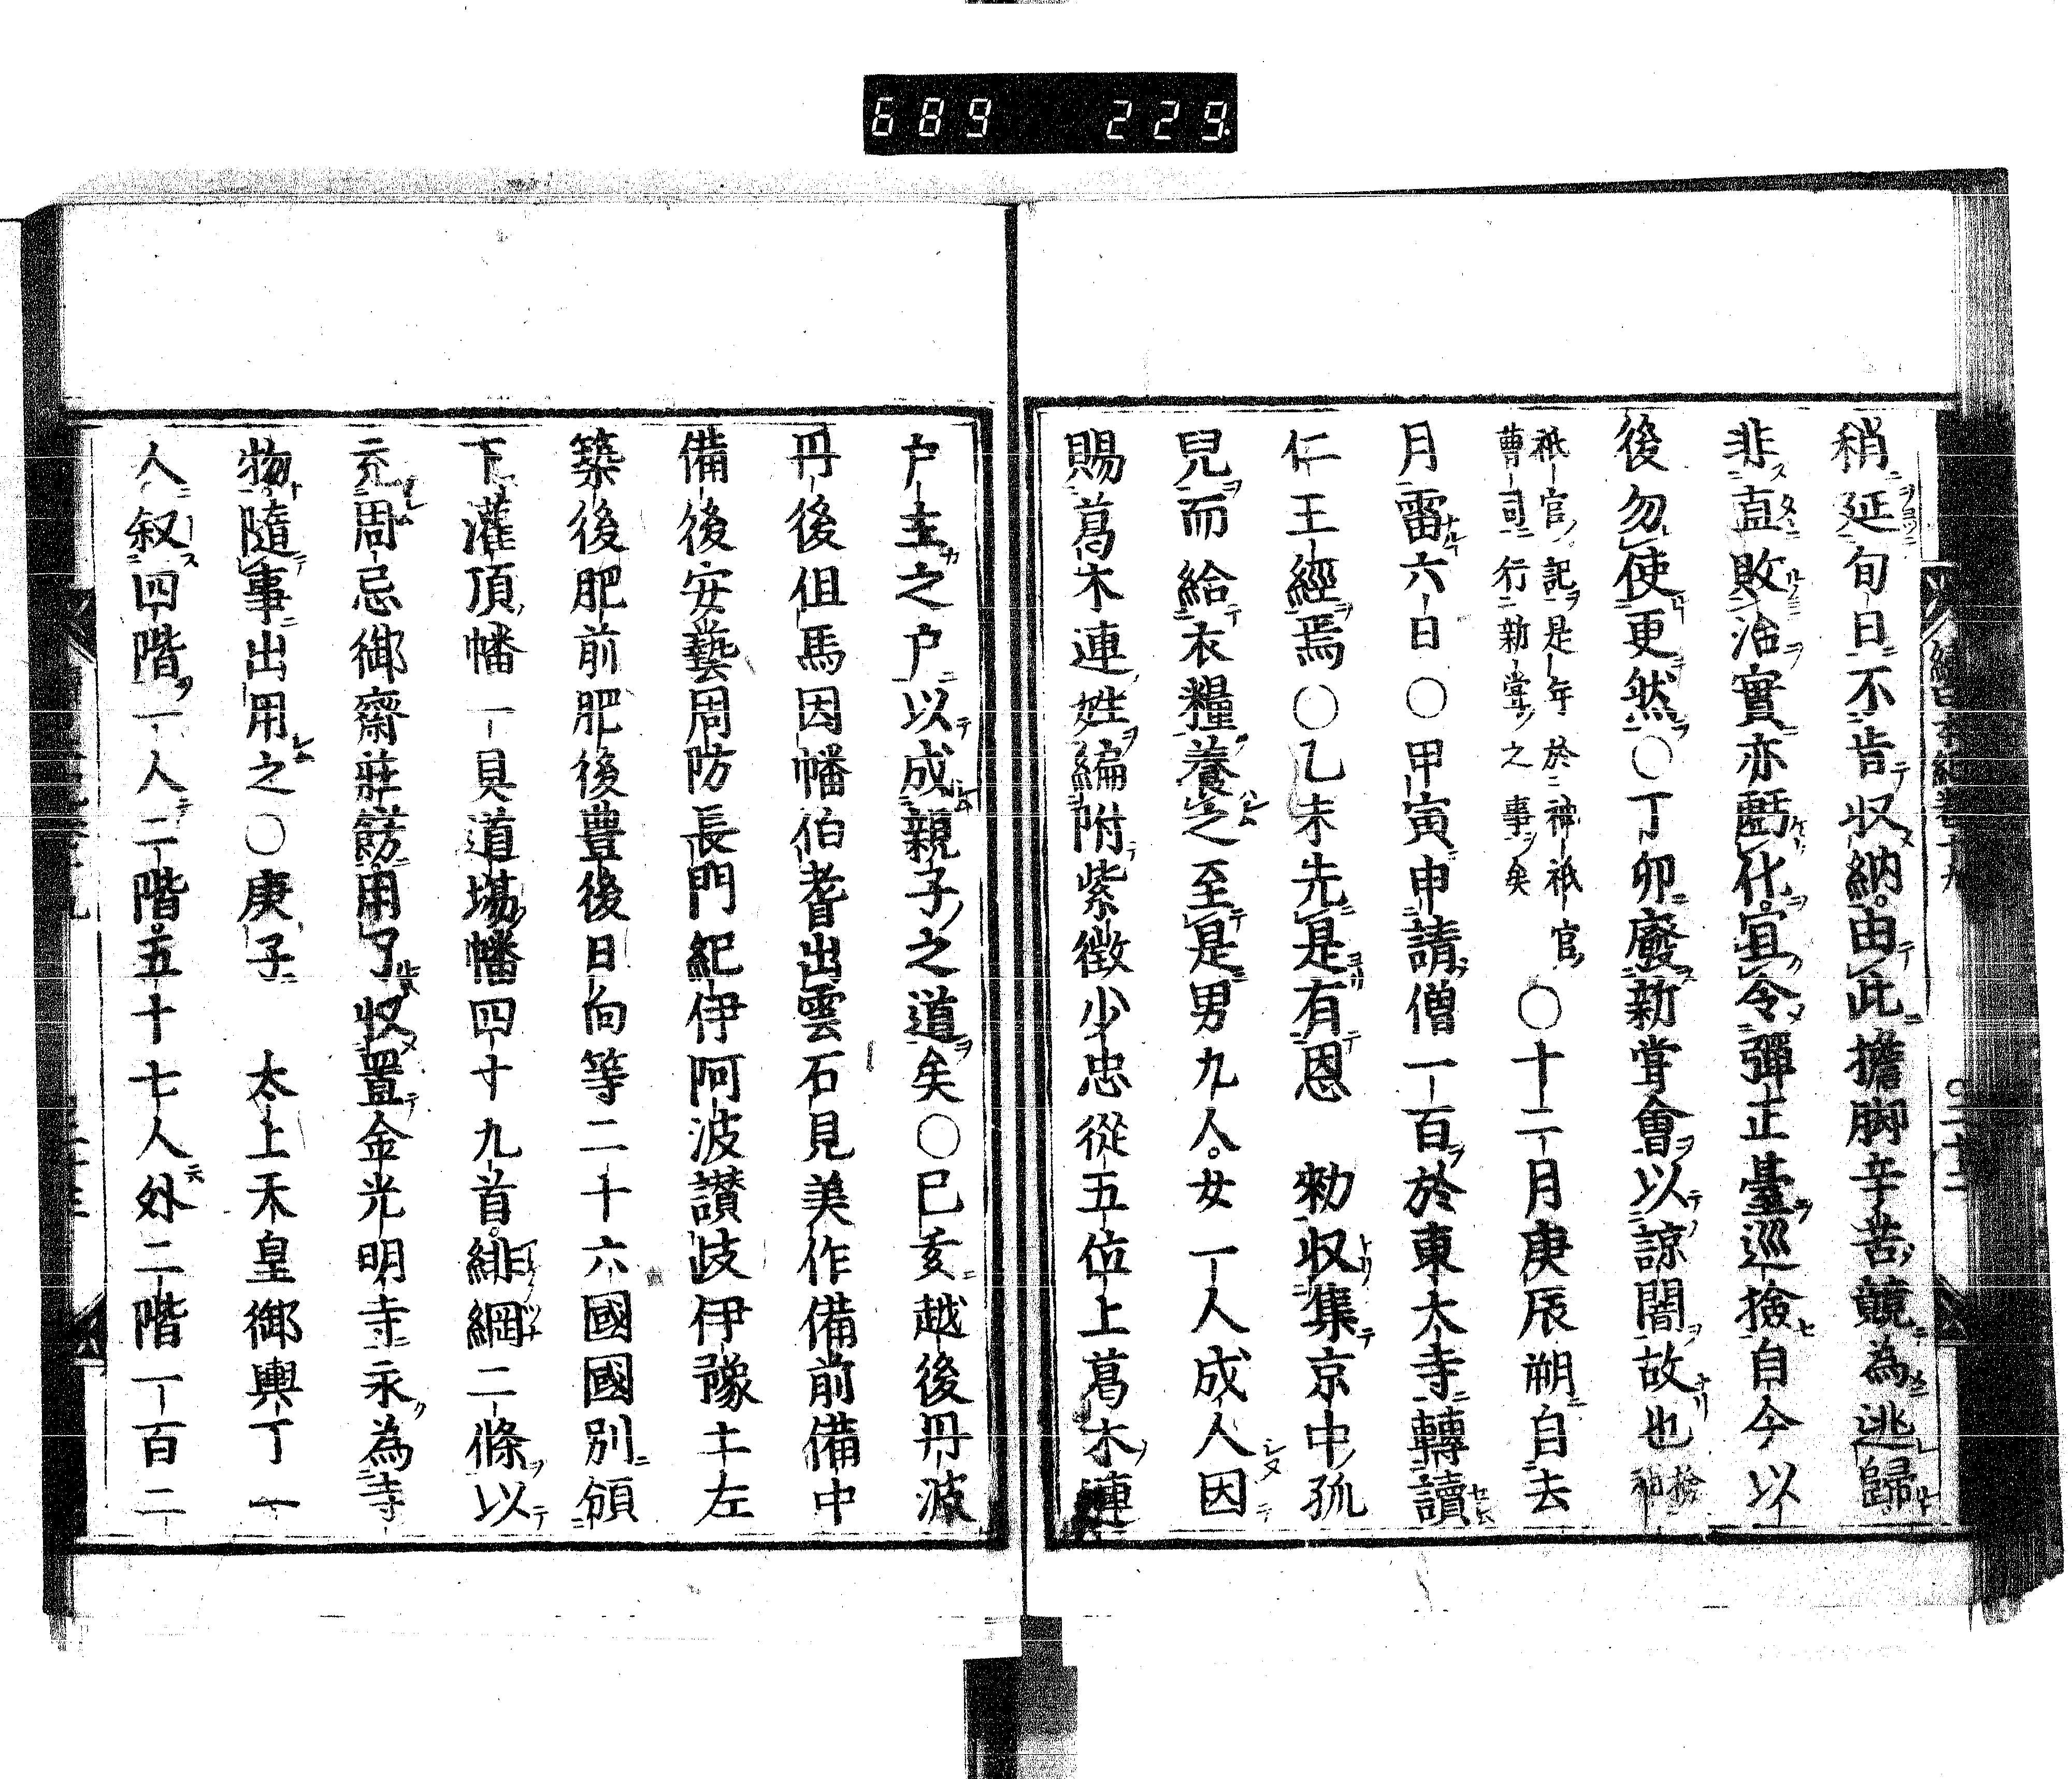 689 229
稍延旬日不肯収納由此擔脚辛苦競為逃歸
非直敗治實亦虧化宜令彈正臺巡撿自今以
後勿使更然〇丁卯廢新甞會以諒闇故也撿神
祇官記是年於神祇官
曹司行新甞之事矣〇十二月庚辰朔自去
月雷六日〇甲寅申請僧一百於東大寺轉讀
仁王經焉〇乙未先是有恩勑収集京中孤
兒而給衣糧養之至是男九人女一人成人因
賜葛木連姓編附紫微少忠從五位上葛木連
戶主之戶以成親子之道矣〇己亥越後丹波
丹後但馬因幡伯耆出雲石見美作備前備中
備後安藝周防長門紀伊阿波讃岐伊豫土左
築後肥前肥後豊後日向等二十六國國別頒
下灌頂幡一具道場幡四十九首緋綱二條以
充周忌御齋莊餝用了収置金光明寺永為寺
物隨事出用之〇庚子太上天皇御輿丁一
人叙四階一人二階五十七人外二階一百二